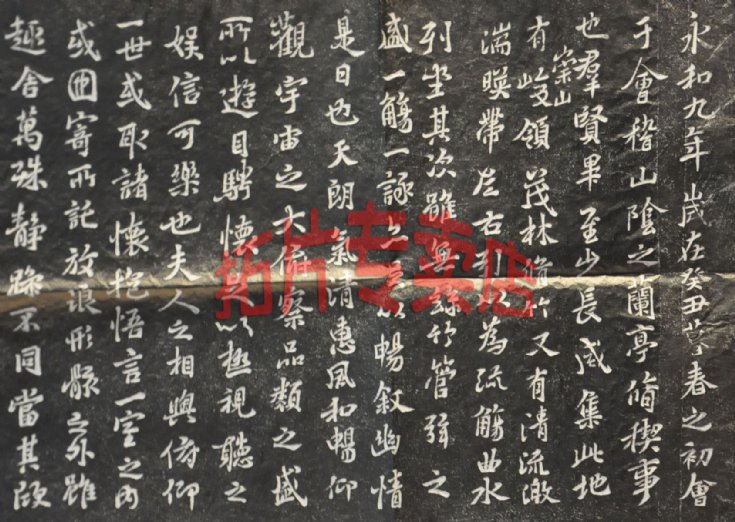 永和九年歲在癸丑暮春之初會
于會稽山陰之蘭亭脩稧事
也羣賢畢至少長咸集此地
有崇山峻領茂林脩竹又有清流激
湍暎帶左右引以為流觴曲水
列坐其次雖無絲竹管弦之
盛一觴一詠亦足以暢敘幽情
是日也天朗氣清惠風和暢仰
觀宇宙之大俯察品類之盛
所以遊目騁懷足以極視聽之
娛信可樂也夫人之相與俯仰
一世或取諸懷抱悟言一室之內
或因寄所託放浪形骸之外雖
趣舍萬殊靜躁不同當其欣
拓片专卖店